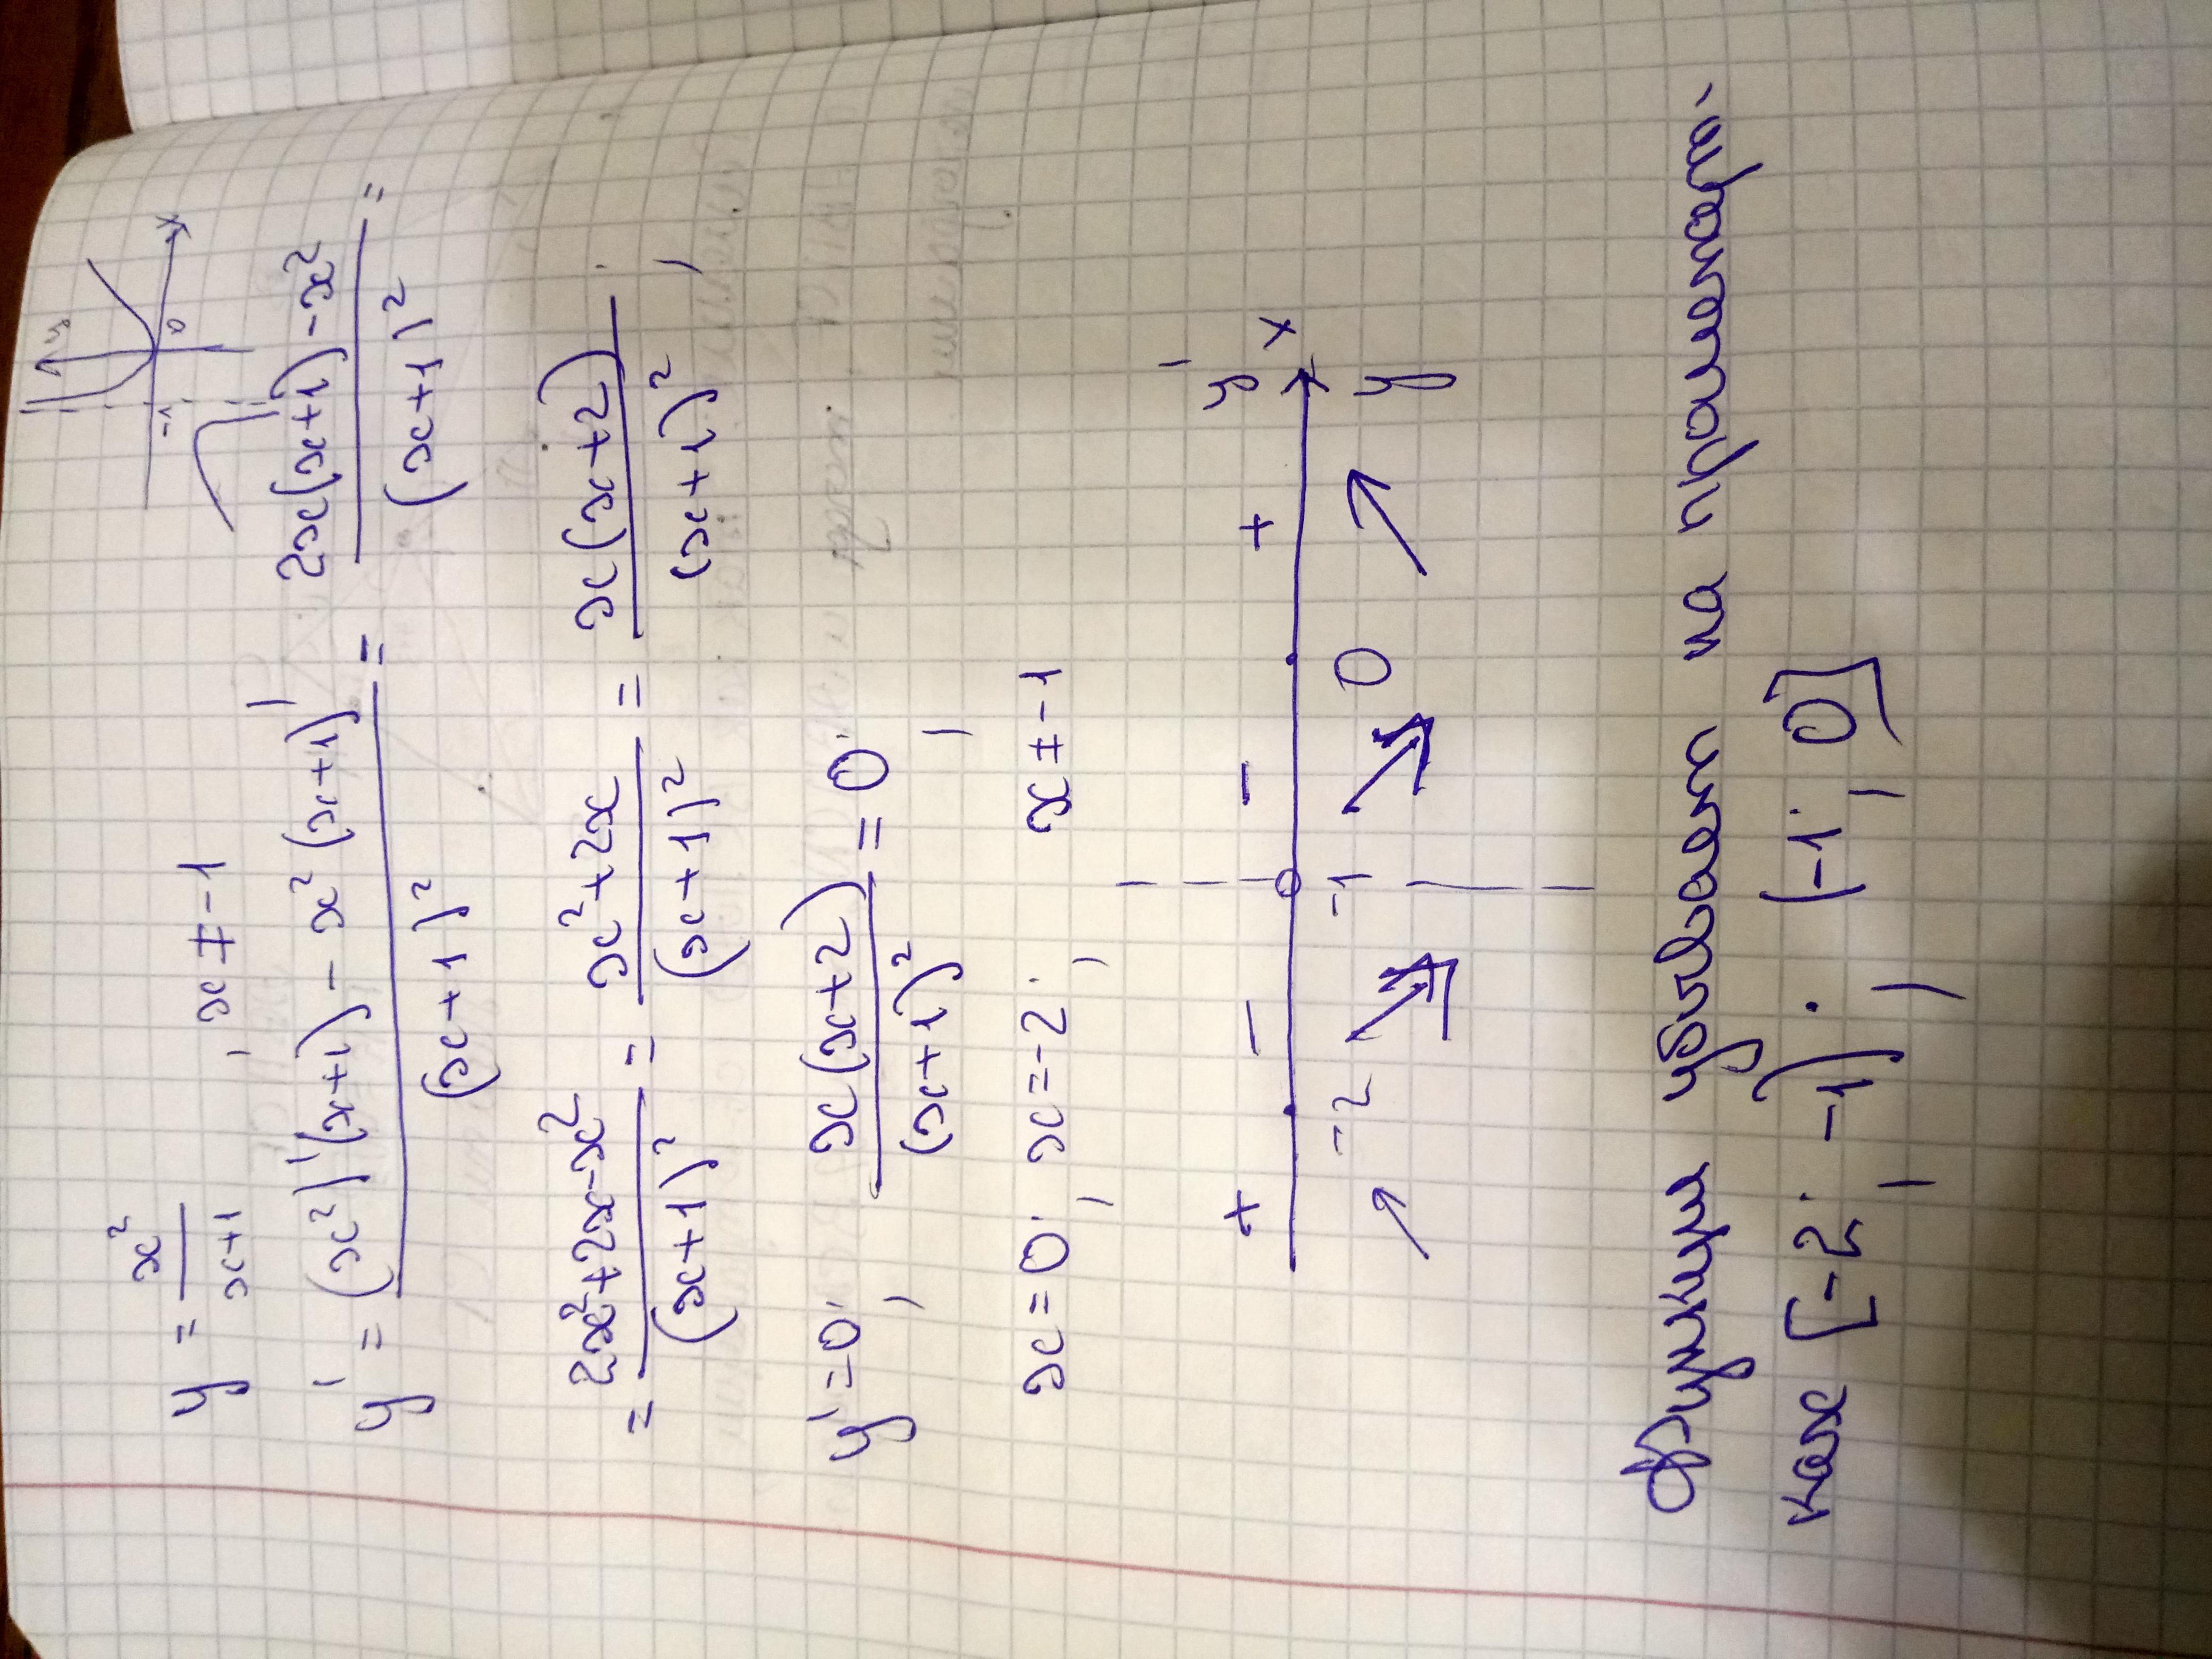 y
-1 0 x
y = x²/(x+1) , x ≠ -1
y' = ((x²)'(x+1) - x²(x+1)')/(x+1)² = (2x(x+1) - x²)/(x+1)² =
= (2x²+2x-x²)/(x+1)² = (x²+2x)/(x+1)² = x(x+2)/(x+1)² ;
y'=0; x(x+2)/(x+1)² = 0;
x=0; x=-2; x ≠ -1
+ - - + y'
x
-2 -1 0 y
Функция убывает на промежут-
ках [-2; -1); (-1; 0]